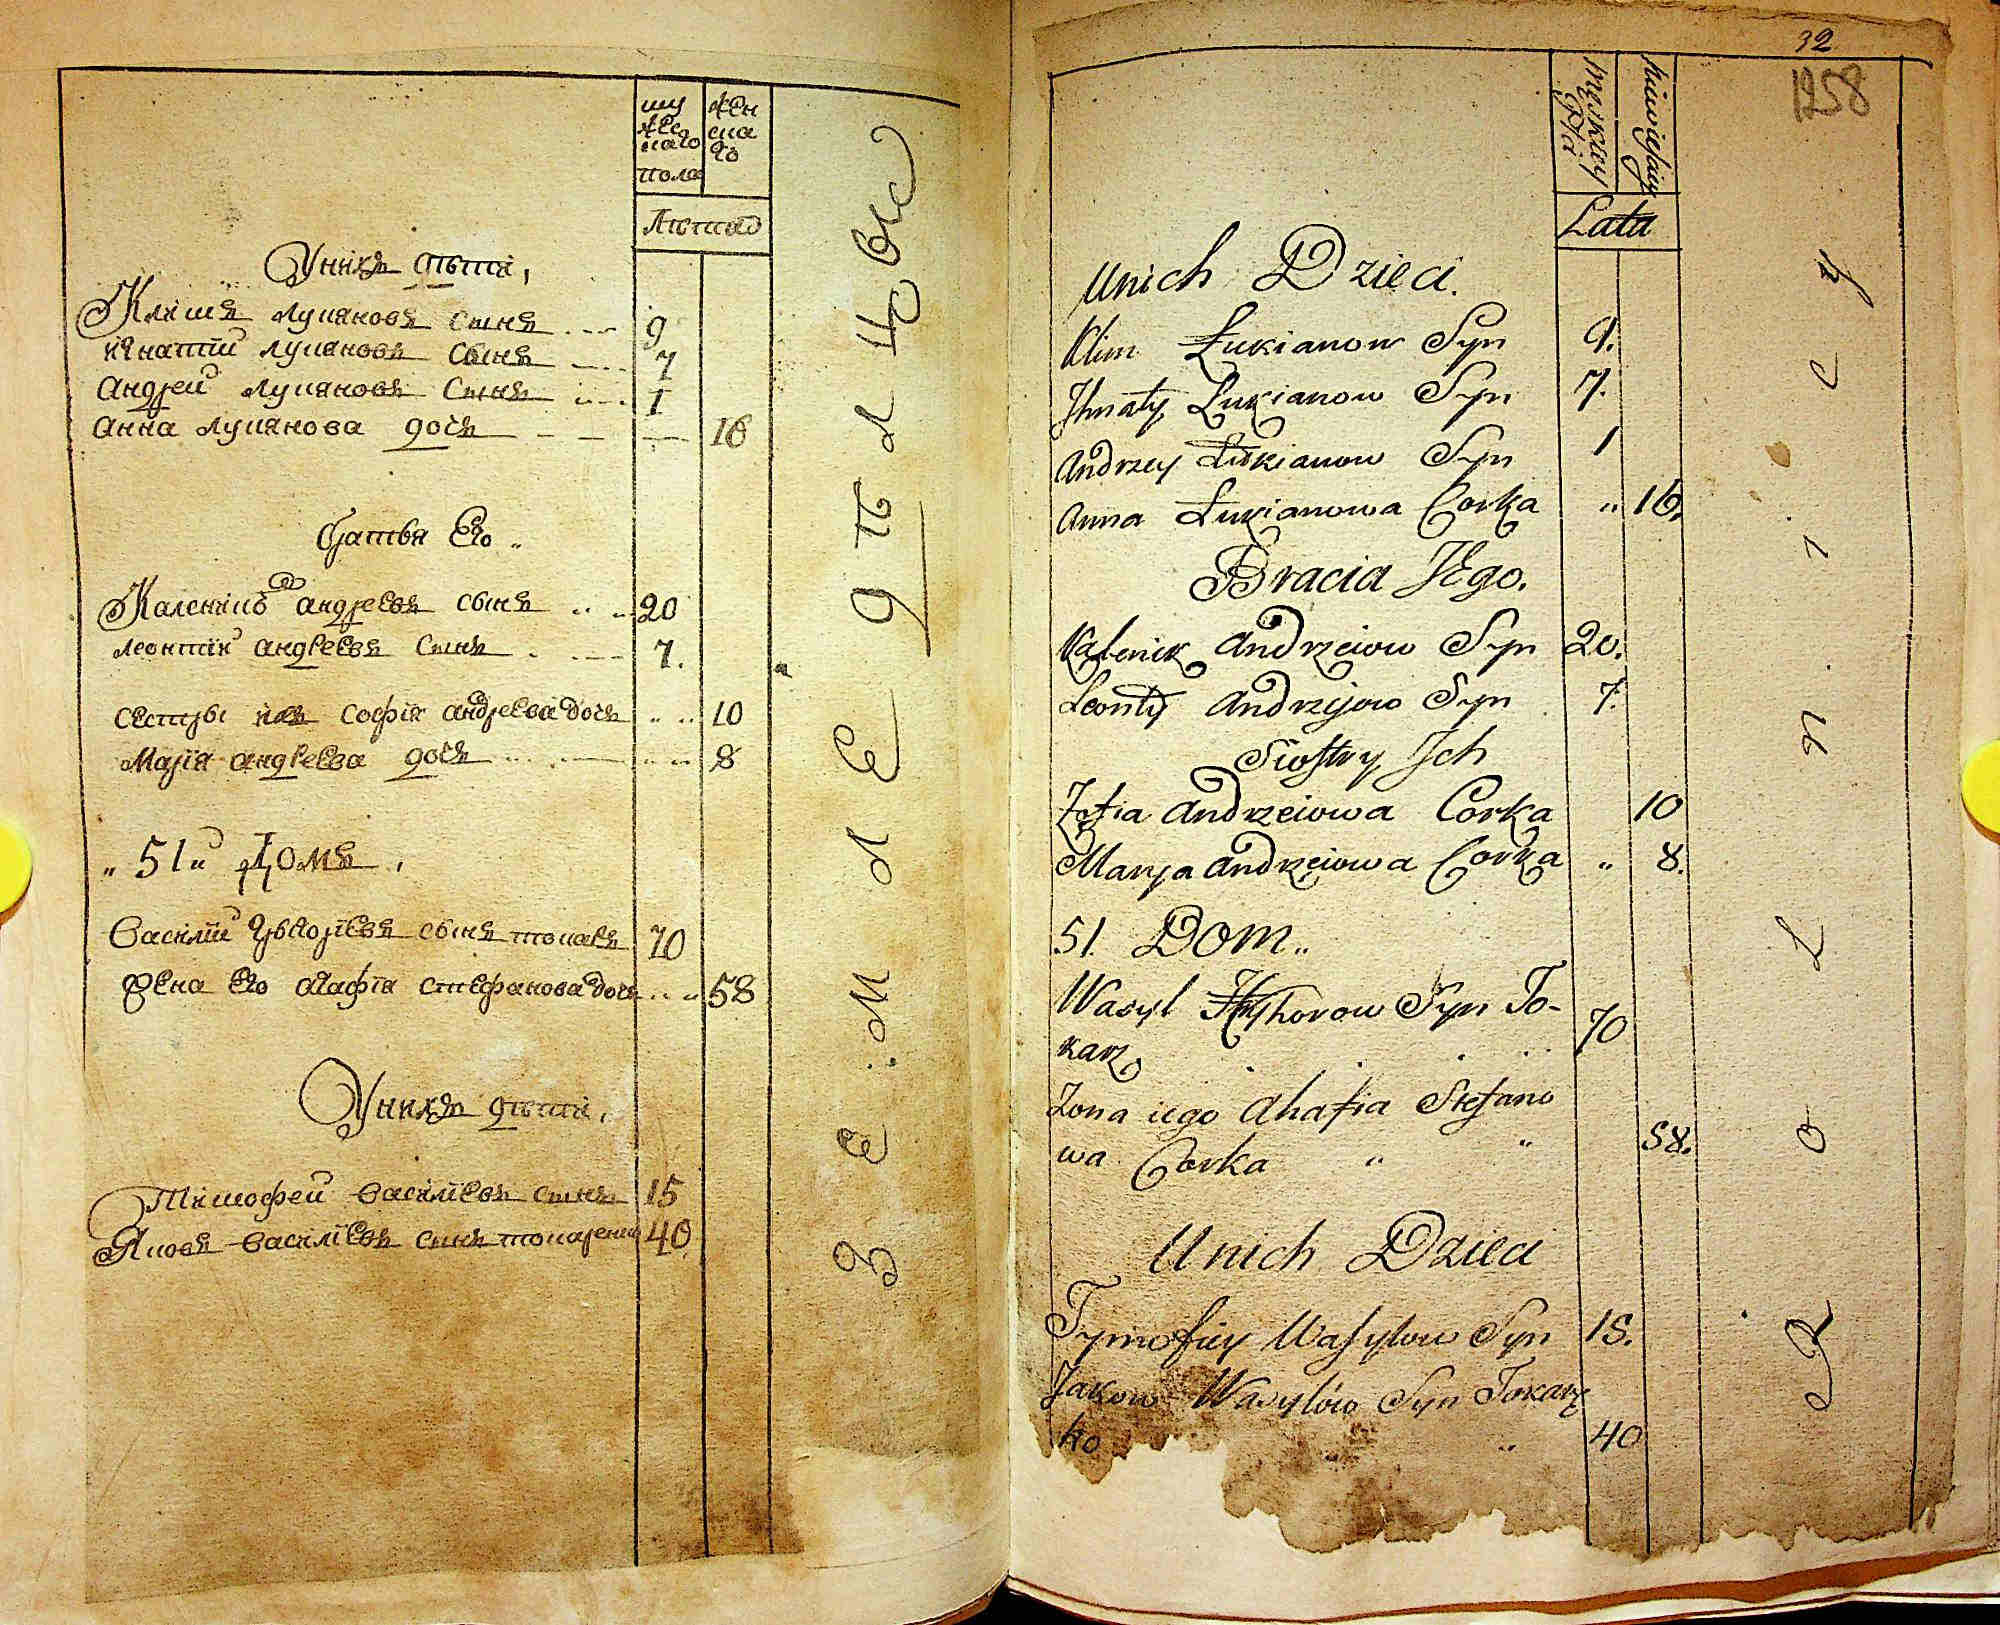 му
жес
каго
пола
жен
ска
го
Лѣтаб
Унихъ дѣти,
Климъ Лукяновъ сынъ 9
Игнатїй Лукяновъ сынъ 7
Андрей Лукяновъ сынъ 1
Анна Лукянова дочъ 16
братья Его
Каленикъ андреевъ сынъ 20
леонтїй андреевъ сынъ 7.
сестры ихъ софїя андреева дочъ 10
Марїя андреева дочъ 8
„ 51 „ Домъ,
Василїй Григорїевъ сынъ токаръ 70
жена Его агафїя стефанова дочъ 58
Унихъ дѣти,
Тимофей василїевъ сынъ 15
Яковъ василїевъ сынъ токаренко 40
земледѣлцовъ
32
1258
męzkiey
Płci
kobiecey
Lata
Unich Dzieci.
Klim Łukianow Syn 9.
Ihnaty Łukianow Syn 7.
Andrzey Łukianow Syn 1
Anna Łukianowa Corka „ 16.
Bracia JEgo.
Kalenik Andrzeiow Syn 20.
Leonty Andrzijow Syn 7.
Siostry Ich
Zofia Andrzeiowa Corka 10
Marya Andrzeiowa Corka „ 8.
51. Dom „
Wasyl Hryhorow Syn To-
karz 70
Zona iego Ahafia Stefano
wa Corka „ „ 58.
Unich Dzieci
Tymofiey Wasylow Syn 15.
Jakow Wasylów Syn Tokarz
ko „ 40
Rolnicy